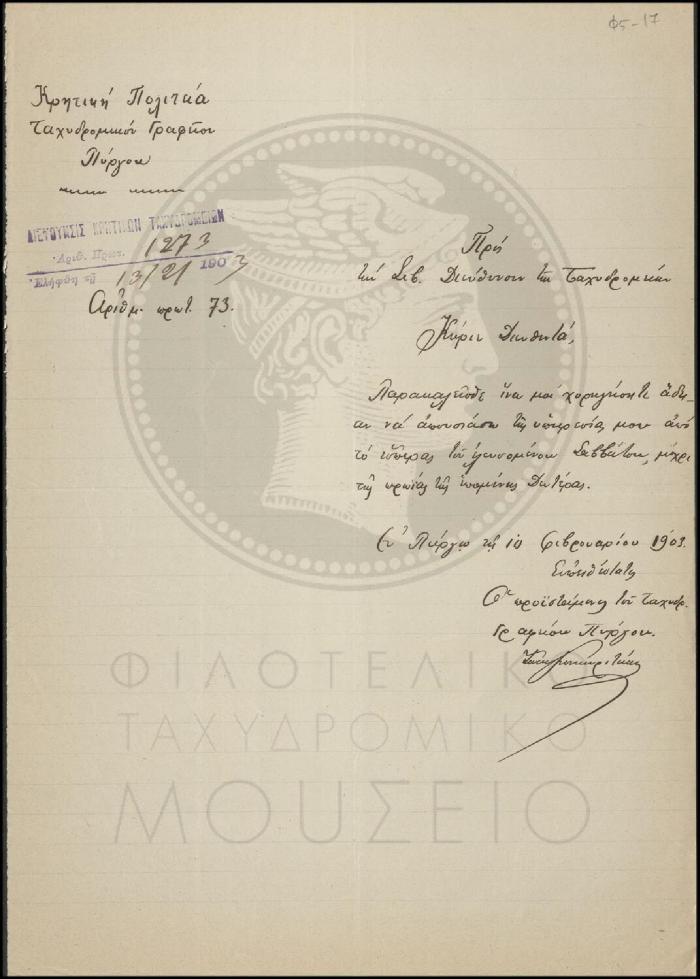 Φ5-17
Κρητική Πολιτεία
Ταχυδρομικόν Γραφεῖον
Πύργου
ΔΙΕΥΘΥΝΣΙΣ ΚΡΗΤΙΚΩΝ ΤΑΧΥΔΡΟΜΕΙΩΝ
Ἀριθ. Πρωτ. 1273
Ἐλήφθη τῇ 13/2/1903
Ἀριθμ. πρωτ. 73.
Πρὸς
τὴν Σεβ. Διεύθυνσιν τῶν Ταχυδρομείων
Κύριε Διευθυντά,
Παρακαλεῖσθε ἵνα μοὶ χορηγήσητε ἄδει-
αν νὰ ἀπουσιάσω τῆς ὑπηρεσίας μου ἀπὸ
τὸ ἑσπέρας τοῦ ἐλευσομένου Σαββάτου, μέχρι
τῆς πρωίας τῆς ἑπομένης Δευτέρας.
Ἐν Πύργῳ τῇ 10 Φεβρουαρίου 1903.
Εὐπειθέστατος
Ὁ προϊστάμενος τοῦ Ταχυδρ.
Γραφείου Πύργου.
ΦΙΛΟΤΕΛΙΚΟ
ΤΑΧΥΔΡΟΜΙΚΟ
ΜΟΥΣΕΙΟ